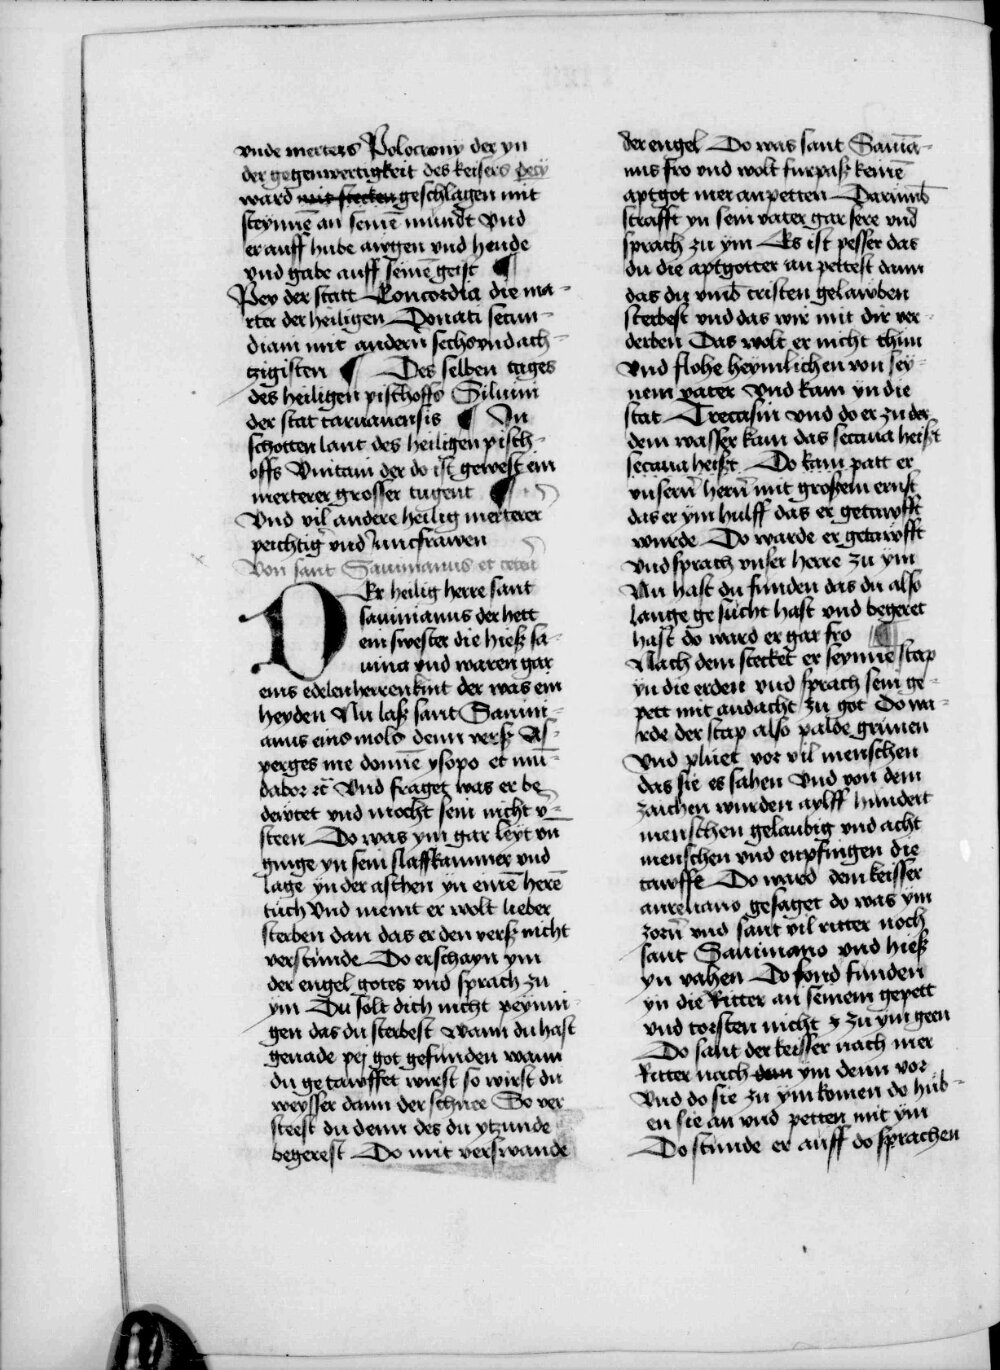 vnde merters Polocrony der yn
der gegenwertigkeit des keisers decy
ward mit stecken geschlagen mit
steynnē an seinē mundt Vnd
er auff hube awgen vnd hende
vnd gabe auff seinē geist ¶
Pey der statt Concordia die ma-
rter der heiligen Donati secun-
diani mit andern̄ sechsvndach-
tzigisten ¶ Des selben tages
des heiligen pischoffs Siluini
der stat taruanensis ¶ In
schotten lant des heiligen pisch-
offs Vnitani der do ist gewest ein
merterer grosser tugent ¶
Vnd vil andere heilig merterer
peichtig vnd iuncfrawen
Von sant Sauinianus et cetera
DEr heilig herre sant
sauinianus der hett
ein swester die hieß sa-
uina vnd waren gar
eins edelen herren kint der was ein
heyden Nu laß sant Sauini-
anus eins mols denn verß As-
perges me domīe ysopo et mū-
dabor ec̄ Vnd fraget was er be
dewtet vnd mocht sein nicht v̄-
steen Do was ym gar leyt vn
ginge yn sein slaffkammer vnd
lage yn der aschen yn einē herē
tuch Vnd meint er wolt lieber
sterben dan das er den verß nicht
verstunde Do erschayn ym
der engel gotes vnd sprach zu
ym Du solt dich nicht peynni-
gen das du sterbest wann du hast
genade pey got gefunden wann
du getawffet wirst so wirst du
weysser dann der schnee So ver
steest du denn des du ytzunde
begerest Do mit verswande
der engel Do was sant Sauinia-
nus fro vnd wolt furpaß keinē
aptgot mer anpetten Darumb
strafft yn sein vater gar sere vnd
sprach zu ym Es ist pesser das
du die aptgotter an pettest dann
das du vmb cristen gelawben
sterbest vnd das wir mit dir ver-
derben Das wolt er nicht thun
Vnd flohe heymlichen von sey-
nem vater Vnd kam yn die
stat Trecasin vnd do er zu der
dem wasser kam das secana heist
secana heist Do kam patt er
vnsern̄ hern̄ mit großem ernst
das er ym hulff das er getawfft
wurde Do warde er getawfft
Vnd sprach vnser herre zu ym
Nu hast du funden das du also
lange gesucht hast vnd begeret
hast do ward er gar fro ¶
Nach dem stecket er seynne stap
yn die erden vnd sprach sein ge-
pett mit andacht zu got Do wa-
rde der stap also palde grunen
Vnd pluet vor vil menschen
das sie es sahen Vnd von dem
zaichen wurden aylff hundert
menschen gelaubig vnd acht
menschen vnd enpfingen die
tawffe Do ward dem keisser
aureliano gesaget do was ym
zorn̄ vnd sant vil ritter noch
sant Sauiniano vnd hieß
yn vahen Do fond funden
yn die Ritter an seinem gepett
vnd torsten nicht zu ym geen
Do sant der keisser nach mer
Ritter nach dan ym denn vor
Vnd do sie zu ym komen do hub-
en sie an vnd petten mit ym
Do stunde er auff do sprachen